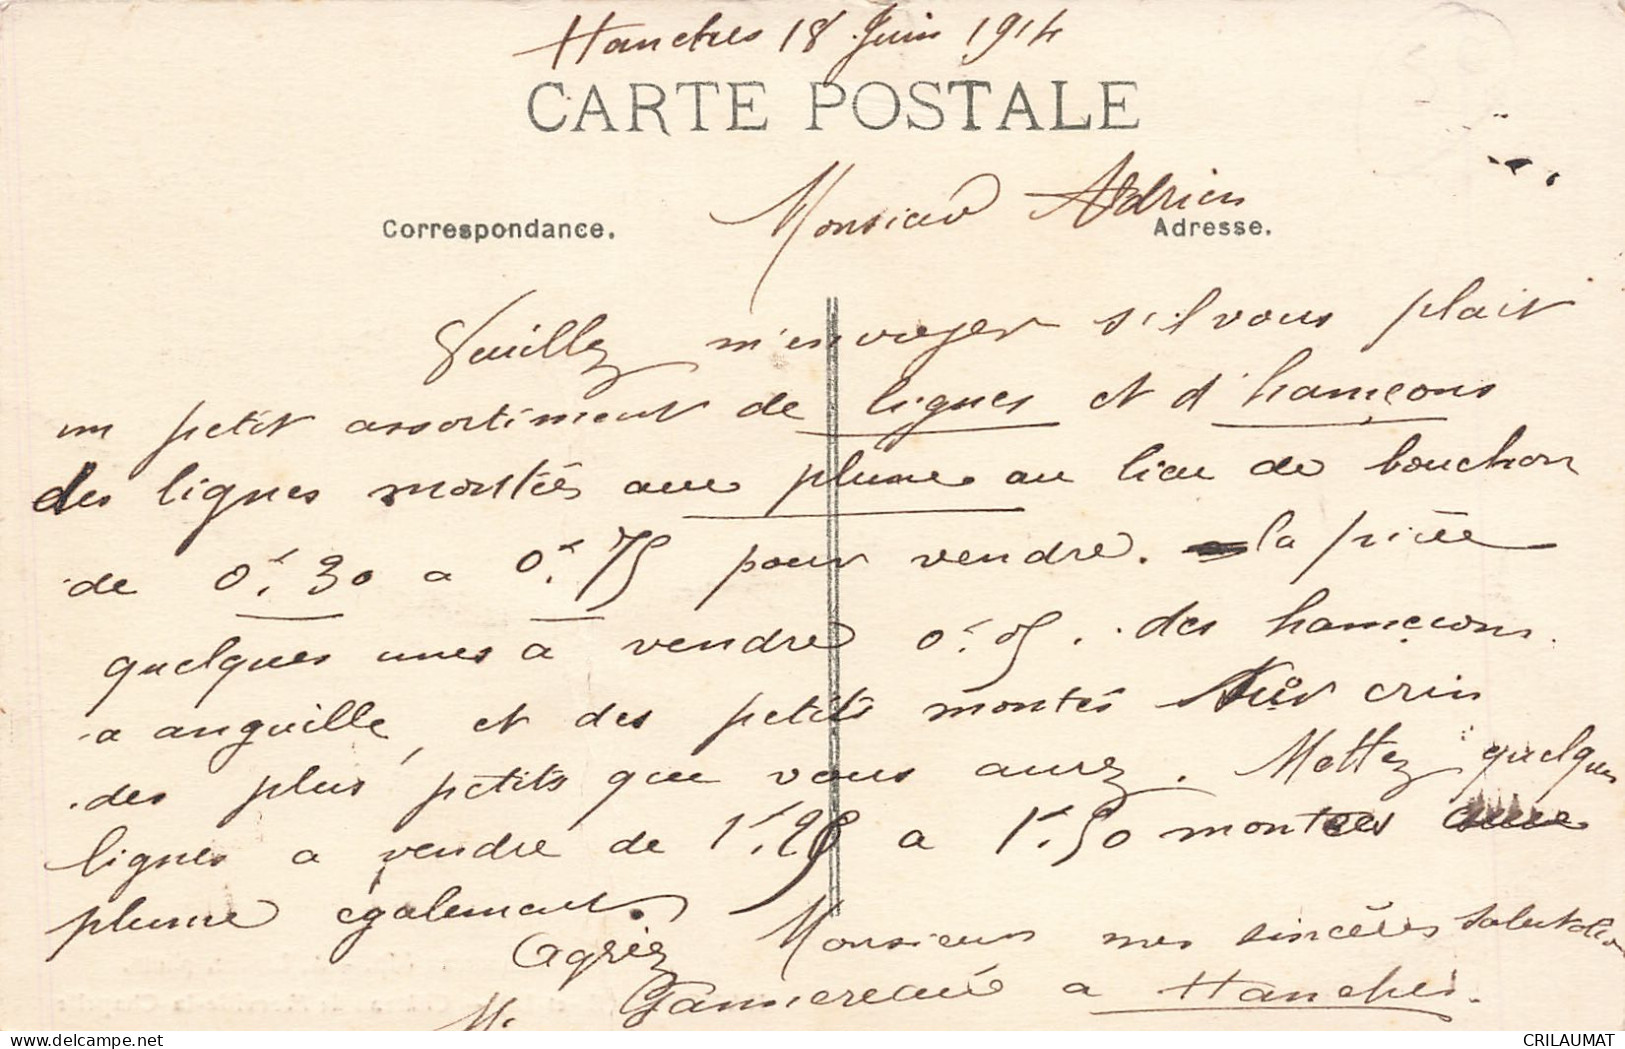 Hanches 18 Juin 1914
CARTE POSTALE
Monsieur Adrien
Correspondance.
Adresse.
Veuillez m'envoyer s'il vous plait
un petit assortiment de lignes et d'hameçons
des lignes montés avec plume au lieu de bouchon
de 0f.30 a 0f.75 pour vendre. la pièce
quelques unes à vendre 0f.05. des hameçons.
a anguille, et des petits montés sur crin
des plus petits que vous aurez. Mettez quelques
lignes a vendre de 1f.25 a 1f.50 montées avec
plume également.
Agréez Monsieur mes sincères Salutations
M. à Hanches.
CRILAUMAT